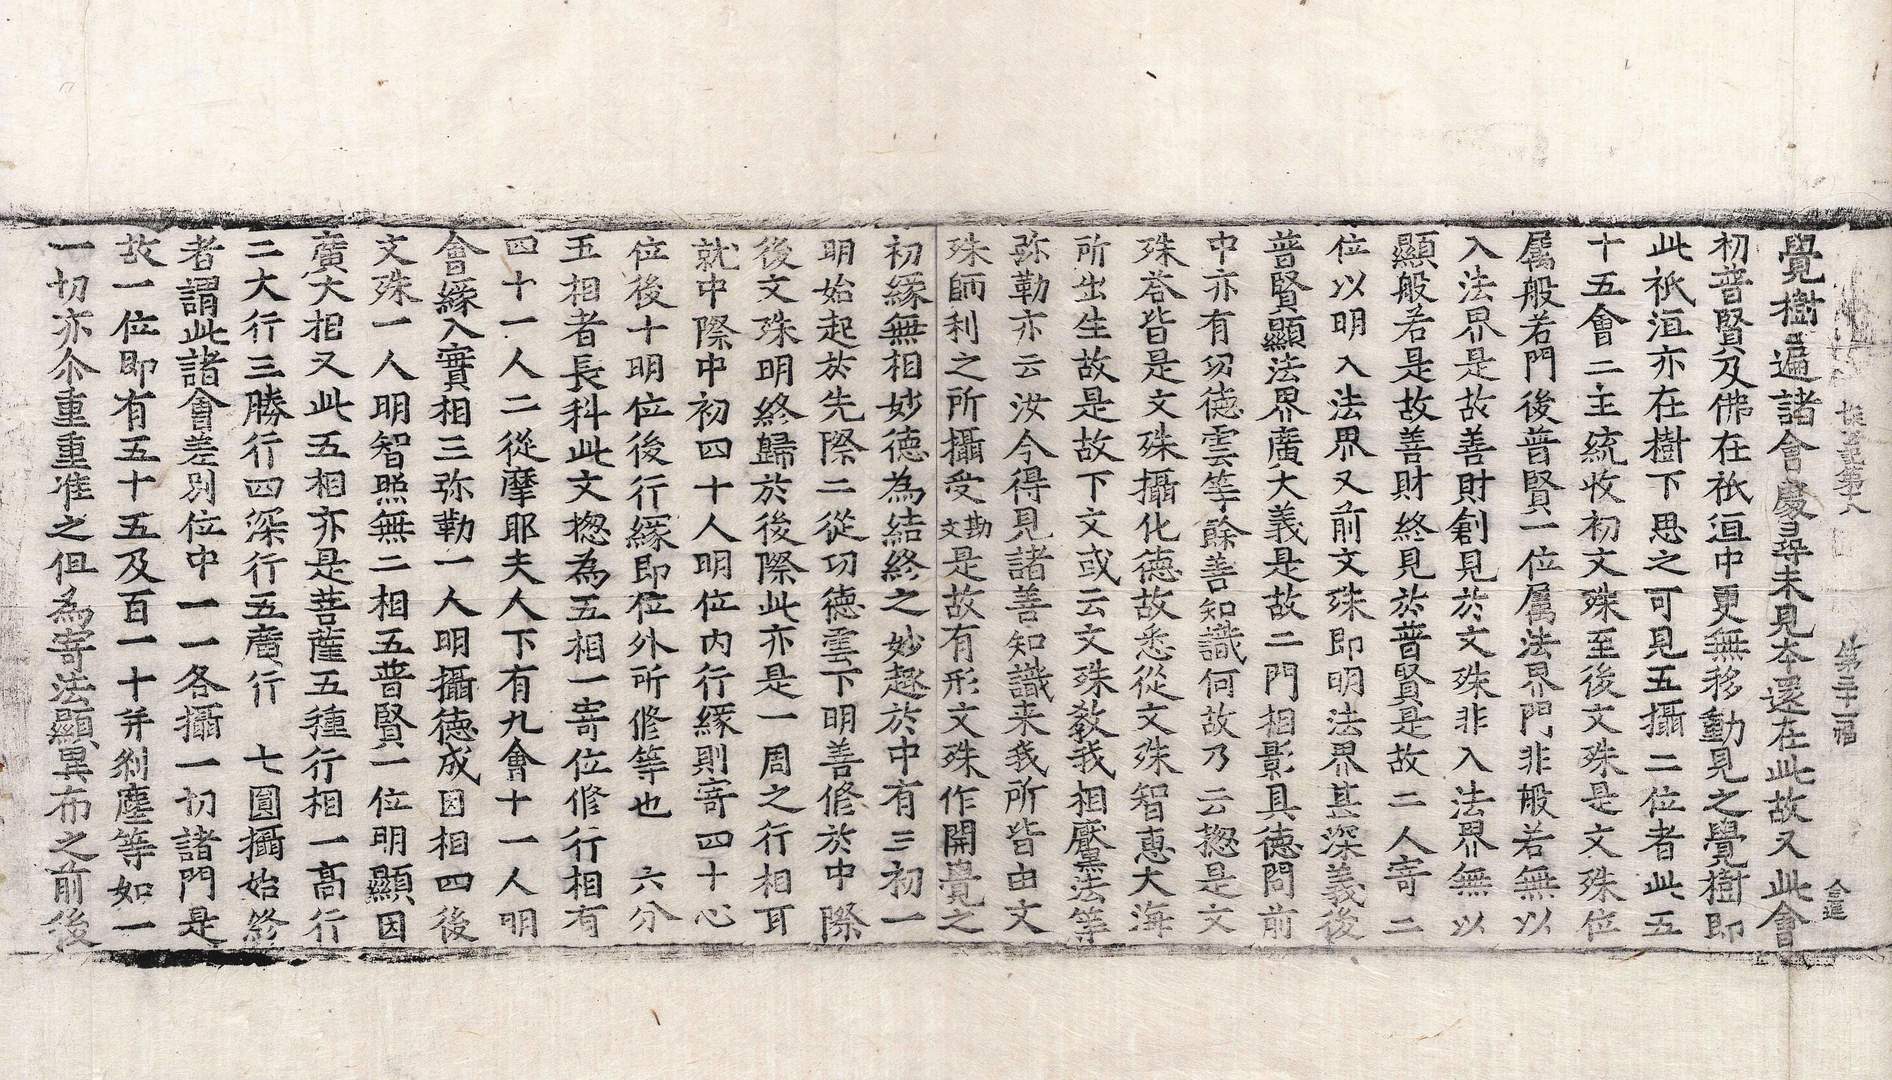 探玄記第十八　第二十一幅　合進
覺樹遍諸會處尋未見本還在此故又此會
初普賢及佛在祇洹中更無移動見之覺樹即
此祇洹亦在樹下思之可見五攝二位者此五
十五會二主統收初文殊至後文殊是文殊位
属般若門後普賢一位属法界門非般若無以
入法界是故善財創見於文殊非入法界無以
顯般若是故善財終見於普賢是故二人寄二
位以明入法界又前文殊即明法界甚深義後
普賢顯法界廣大義是故二門相影具德問前
中亦有功德雲等餘善知識何故乃云揔是文
殊荅皆是文殊攝化德故悉從文殊智惠大海
所出生故是故下文或云文殊教我相壓法等
弥勒亦云汝今得見諸善知識来我所皆由文
殊師利之所攝受勘文是故有形文殊作開覺之
初緣無相妙德為結終之妙趣於中有三初一
明始起於先際二從功德雲下明善俢於中際
後文殊明終歸於後際此亦是一周之行相耳
就中際中初四十人明位内行緣則寄四十心
位後十明位後行緣即位外所俢等也　六分
五相者長科此文揔為五相一寄位俢行相有
四十一人二從摩耶夫人下有九會十一人明
會緣入實相三弥勒一人明攝德成因相四後
文殊一人明智照無二相五普賢一位明顯因
廣大相又此五相亦是菩薩五種行相一高行
二大行三勝行四深行五廣行　七圓攝始終
者謂此諸會差别位中一一各攝一切諸門是
故一位即有五十五及百一十并剎塵等如一
一切亦尒重重准之但為寄法顯異布之前後